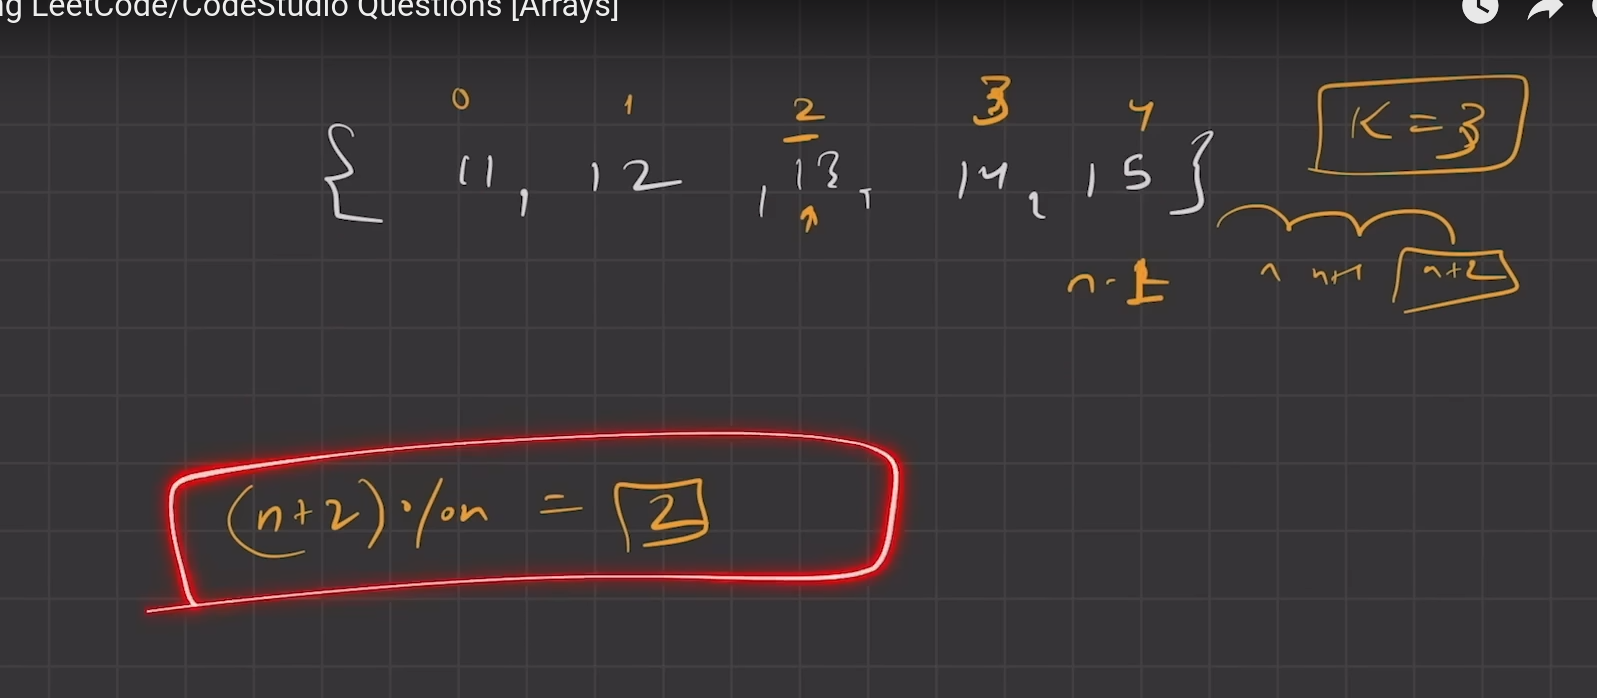 ng LeetCode/CodeStudio Questions [Arrays]
0 1 2 3 4
{ 11, 12, 13, 14, 15 }
K = 3
n-1 n n+1 n+2
(n+2)%n = 2